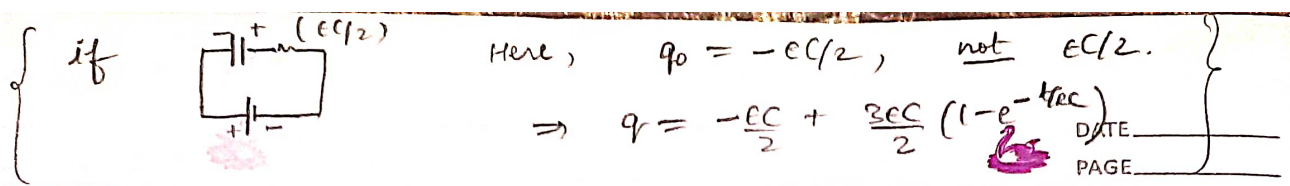 if + (εC/2) Here, q₀ = -εC/2, not εC/2.
+ - ⇒ q = -εC/2 + 3εC/2 (1-e^-t/RC)
DATE
PAGE